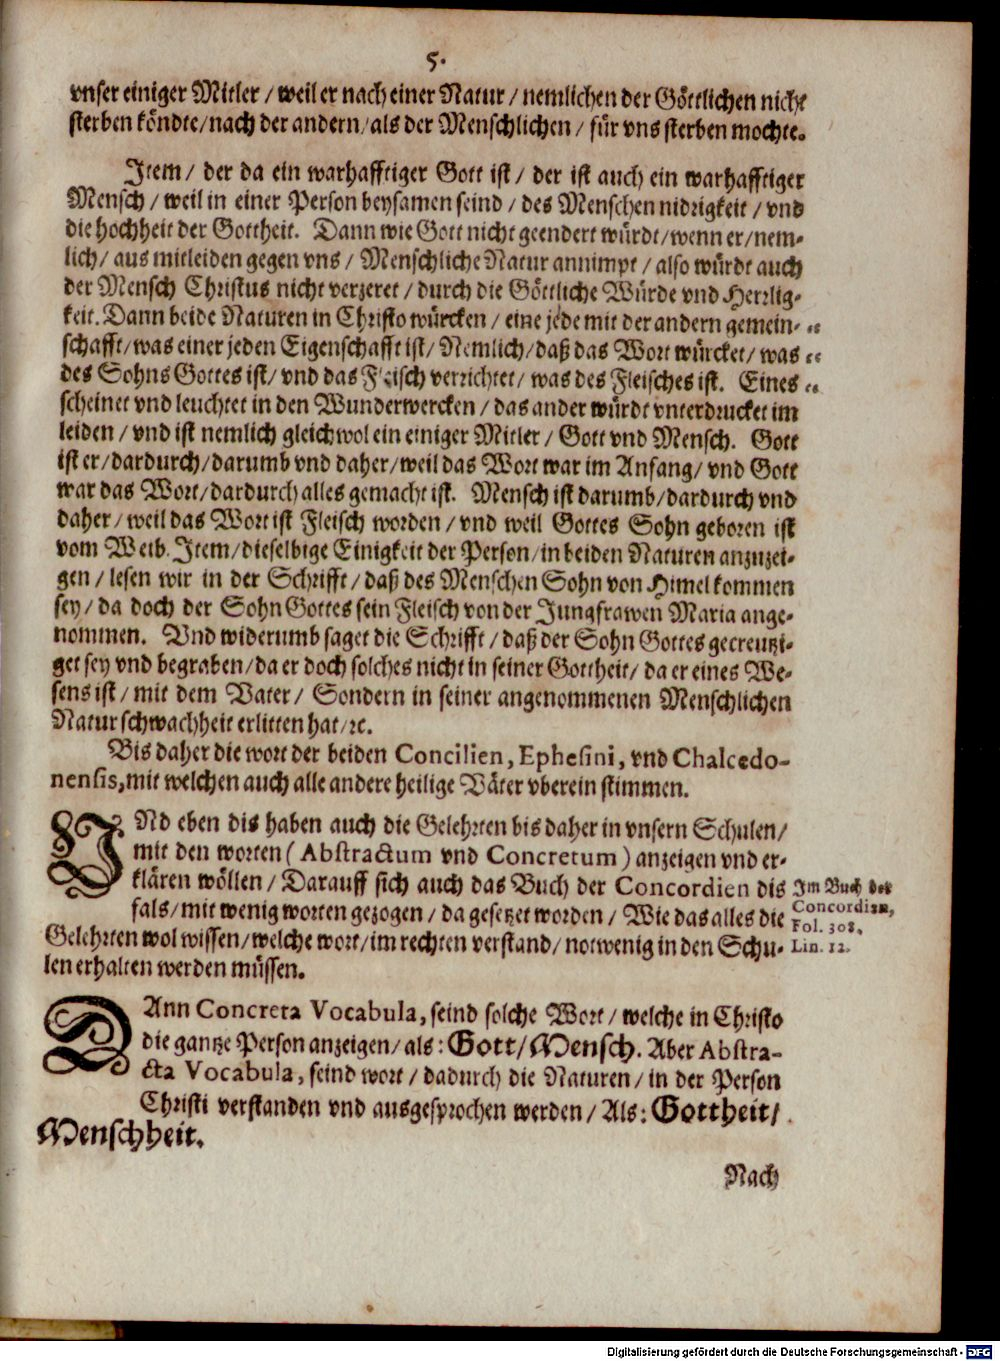 5.
vnser einiger Mitler / weil er nach einer Natur / nemlichen der Göttlichen nicht
sterben köndte/nach der andern/als der Menschlichen / für vns sterben mochte.
Item / der da ein warhafftiger Gott ist / der ist auch ein warhafftiger
Mensch / weil in einer Person beysamen seind / des Menschen nidrigkeit / vnd
die hochheit der Gottheit. Dann wie Gott nicht geendert würdt/wenn er/nem-
lich/ aus mitleiden gegen vns / Menschliche Natur annimpt / also würdt auch
der Mensch Christus nicht verzeret / durch die Göttliche Würde vnd Herrlig-
keit. Dann beide Naturen in Christo würcken / eine jede mit der andern gemein- „
schafft/was einer jeden Eigenschafft ist/ Nemlich/daß das Wort würcket/was „
des Sohns Gottes ist/ vnd das Fleisch verrichtet/ was des Fleisches ist. Eines „
scheinet vnd leuchtet in den Wunderwercken / das ander würdt vnterdrucket im
leiden / vnd ist nemlich gleichwol ein einiger Mitler/ Gott vnd Mensch. Gott
ist er/dardurch/darumb vnd daher/weil das Wort war im Anfang/ vnd Gott
war das Wort/dardurch alles gemacht ist. Mensch ist darumb/dardurch vnd
daher/weil das Wort ist Fleisch worden / vnd weil Gottes Sohn geboren ist
vom Weib. Item/dieselbige Einigkeit der Person/in beiden Naturen anzuzei-
gen / lesen wir in der Schrifft / daß des Menschen Sohn von Himel kommen
sey/ da doch der Sohn Gottes sein Fleisch von der Jungfrawen Maria ange-
nommen. Vnd widerumb saget die Schrifft / daß der Sohn Gottes gecreutzi-
get sey vnd begraben/da er doch solches nicht in seiner Gottheit/ da er eines We-
sens ist / mit dem Vater / Sondern in seiner angenommenen Menschlichen
Natur schwachheit erlitten hat/ꝛc.
Bis daher die wort der beiden Concilien, Ephesini, vnd Chalcedo-
nensis, mit welchen auch alle andere heilige Väter vberein stimmen.
VNd eben dis haben auch die Gelehrten bis daher in vnsern Schulen/
mit den worten ( Abstractum vnd Concretum ) anzeigen vnd er-
klären wöllen / Darauff sich auch das Buch der Concordien dis
fals/mit wenig worten gezogen / da gesetzet worden / Wie das alles die
Gelehrten wol wissen/welche wort/im rechten verstand/ notwenig in den Schu-
len erhalten werden müssen.
Im Buch der
Concordien,
Fol. 308.
Lin. 12.
DAnn Concreta Vocabula, seind solche Wort / welche in Christo
die gantze Person anzeigen/ als: Gott/ Mensch. Aber Abstra-
cta Vocabula, seind wort / dadurch die Naturen / in der Person
Christi verstanden vnd ausgesprochen werden / Als: Gottheit/
Menschheit.
Nach
Digitalisierung gefördert durch die Deutsche Forschungsgemeinschaft - DFG